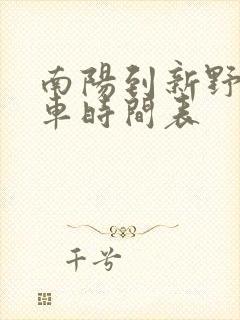 南陽到新野
車時間表
千兮